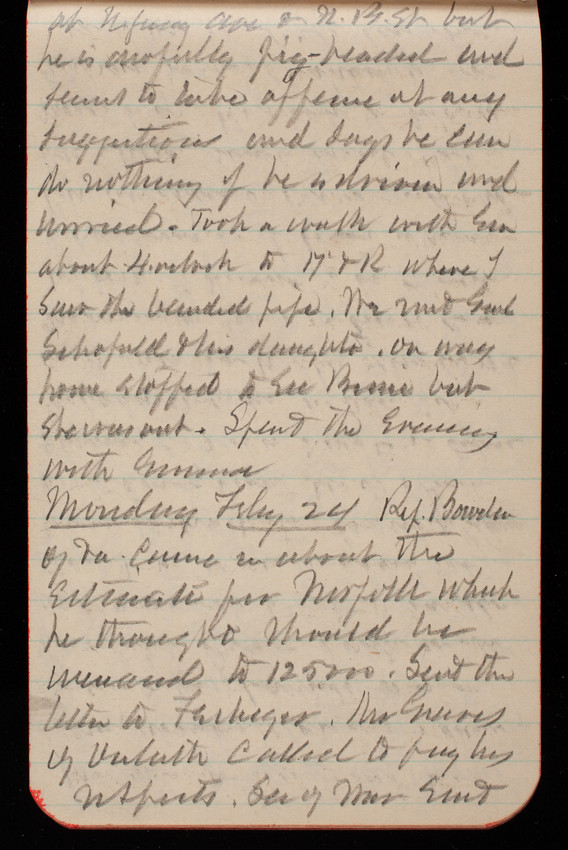 at ave on N. B. St but
he is awfully pig-headed and
seems to take offense at any
suggestion and says he can
do nothing if he is driven and
worried. Took a walk with Geo
about 4 oclock to 17 & R where I
saw the beaded pipe. We met Genl
Schofield & his daughter. On way
home stopped to see but
she was out. Spent the Evening
with Emma
Monday Feby 24 Rep. Bowden
of Va. came in about the
Estimate for Norfolk which
he thought should be
increased to 125000. Sent the
letter to . Mr Graves
of Duluth called to pay his
respects. Sec of War sent